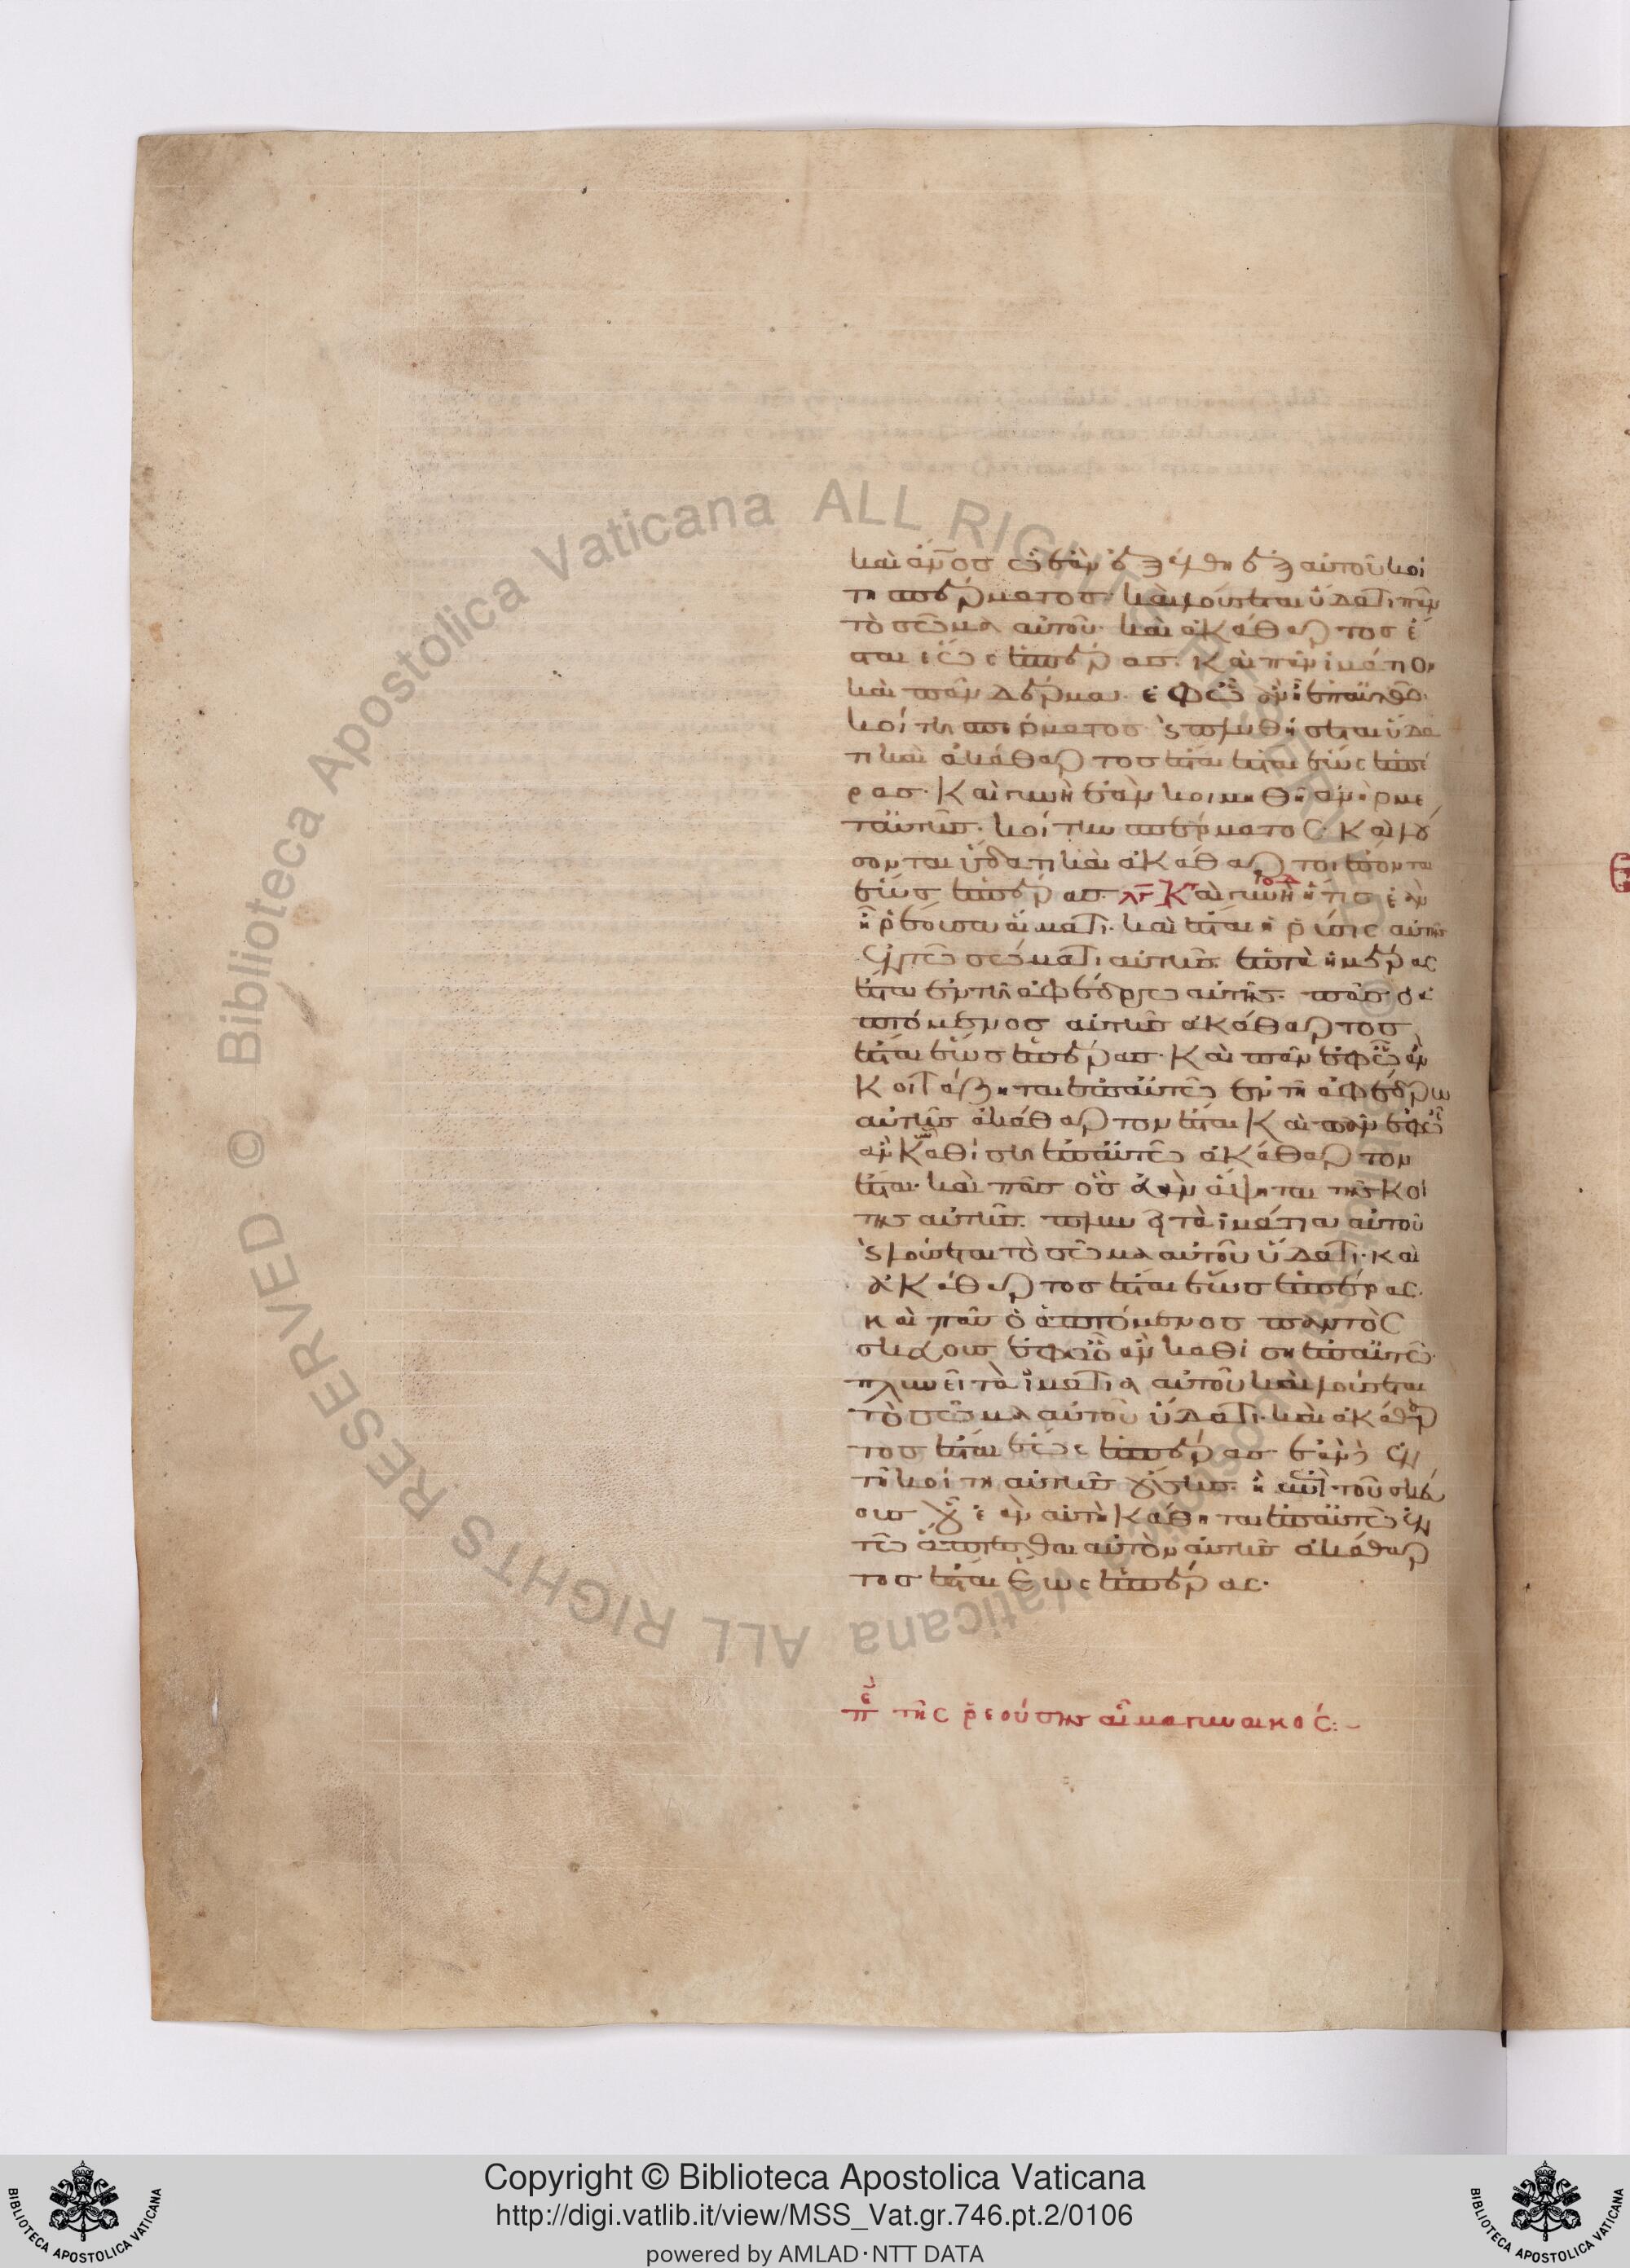 καὶ ἄνος ᾧ ἐὰν ἐξέλθη ἐξ αὐτοῦ κοί
τη σπέρματος· καὶ λούσεται ὕδατι πᾶν
τὸ σῶμα αὐτοῦ· καὶ ἀκάθαρτος ἔ
σται ἕως ἑσπέρας. Καὶ πᾶν ἱμάτιον
καὶ πᾶν δέρμα· ἐφ ὧ
κοίτη σπέρματος· καὶ πλυθήσεται ὕδα
τι καὶ ἀκάθαρτος ἔσται ἕως ἑσπέ
ρας· Καὶ γυνὴ ἐὰν κοιμηθῆ ἀνὴρ με
τ αὐτῆς· κοίτην σπέρματος· Καὶ λού
σονται ὕδατι καὶ ἀκάθαρτοι ἔσονται
ἕως ἑσπέρας. Καὶ γυνὴ ἥτις ἐὰν
ἦ ῥέουσα αἵματι· καὶ ἔσται ἡ ῥύσις αὐτῆς
ἐν τῶ σώματι αὐτῆς. ἑπτὰ ἡμέρας
ἔσται ἐν τῆ ἀφέδρω αὐτῆς· πᾶς ὁ
ἁπτόμενος αὐτῆς ἀκάθαρτος
ἔσται ἕως ἑσπέρας· Καὶ πᾶν ἐφ ᾧ ἂν
κοιτάζηται ἐπ αὐτῶ ἐν τῆ ἀφέδρω
αὐτῆς ἀκάθαρτον ἔσται Καὶ πᾶν ἐφ ᾧ
ἂν καθίση ἐπ αὐτῶ ἀκάθαρτον
ἔσται· καὶ πᾶς ὃς ἐὰν ἅψηται τῆς κοί
της αὐτῆς. πλυνεῖ τὰ ἱμάτια αὐτοῦ
καὶ λούσεται τὸ σῶμα αὐτοῦ ὕδατι· καὶ
ἀκάθαρτος ἔσται ἕως ἑσπέρας.
καὶ πᾶς ὁ ἁπτόμενος παντὸς
σκεύους ἐφ ὃ ἂν καθίση ἐπ αὐτῶ·
πλυνεῖ τὰ ἱμάτια αὐτοῦ καὶ λούσεται
τὸ σῶμα αὐτοῦ ὕδατι· καὶ ἀκάθαρ
τος ἔσται ἕως ἑσπέρας ἐὰν δὲ ἐν
τῆ κοίτη αὐτῆς οὔσης. ἢ ἐπὶ τοῦ σκεύ
ους οὗ ἐὰν αὐτὴ κάθηται ἐπ αὐτῶ ἐν
τῶ ἅπτεσθαι αὐτὸν αὐτῆς ἀκάθαρ
τος ἔσται ἕως ἑσπέρας·
πε τῆς ῥεούσης αἷμα γυναικός:
Copyright © Biblioteca Apostolica Vaticana
http://digi.vatlib.it/view/MSS_Vat.gr.746.pt.2/0106
powered by AMLAD·NTT DATA